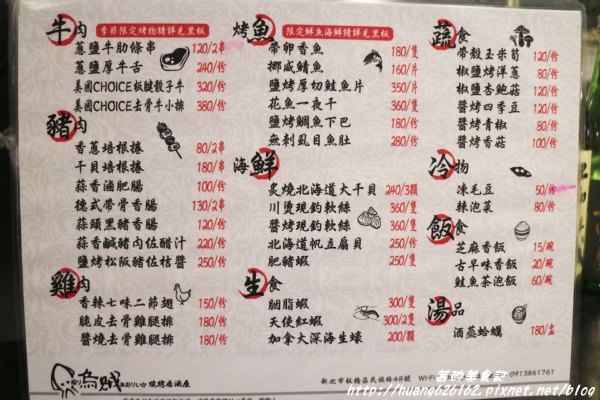 牛肉
季節限定烤物請詳見黑板
蔥鹽牛肋條串 120/2串
蔥鹽厚牛舌 240/份
美國CHOICE板腱骰子牛 320/份
美國CHOICE去骨牛小排 380/份
豬肉
香蔥培根捲 80/2串
干貝培根捲 180/串
蒜香滷肥腸 100/份
德式帶骨香腸 130/2串
蒜頭黑豬香腸 120/份
蒜香鹹豬肉佐醋汁 220/份
鹽烤松阪豬佐桔醬 250/份
雞肉
香辣七味二節翅 150/份
脆皮去骨雞腿排 180/份
醬燒去骨雞腿排 180/份
烤魚
限定鮮魚海鮮請詳見黑板
帶卵香魚 180/隻
挪威鯖魚 180/份
鹽烤厚切鮭魚片 350/片
花魚一夜干 360/份
鹽烤鯛魚下巴 180/份
無刺虱目魚肚 280/份
海鮮
炙燒北海道大干貝 240/3顆
川燙現釣軟絲 360/隻
醬烤現釣軟絲 360/隻
北海道帆立扇貝 250/份
肥豬蝦 250/隻
生食
胭脂蝦 300/隻
天使紅蝦 300/2隻
加拿大深海生蠔 200/顆
蔬食
帶殼玉米筍 120/份
椒鹽烤洋蔥 80/份
椒鹽杏鮑菇 120/份
醬烤四季豆 120/份
醬烤青椒 80/份
醬烤香菇 100/份
冷物
凍毛豆 50/份
辣泡菜 80/份
飯食
芝麻香飯 15/碗
古早味香飯 20/碗
鮭魚茶泡飯 60/碗
湯品
酒蒸蛤蠣 180/盅
烏賊 あおりいか 燒烤居酒屋
新北市板橋區民族路48號 Wi-Fi 0913861761
荖的美食記
http://huang626162.pixnet.net/blog